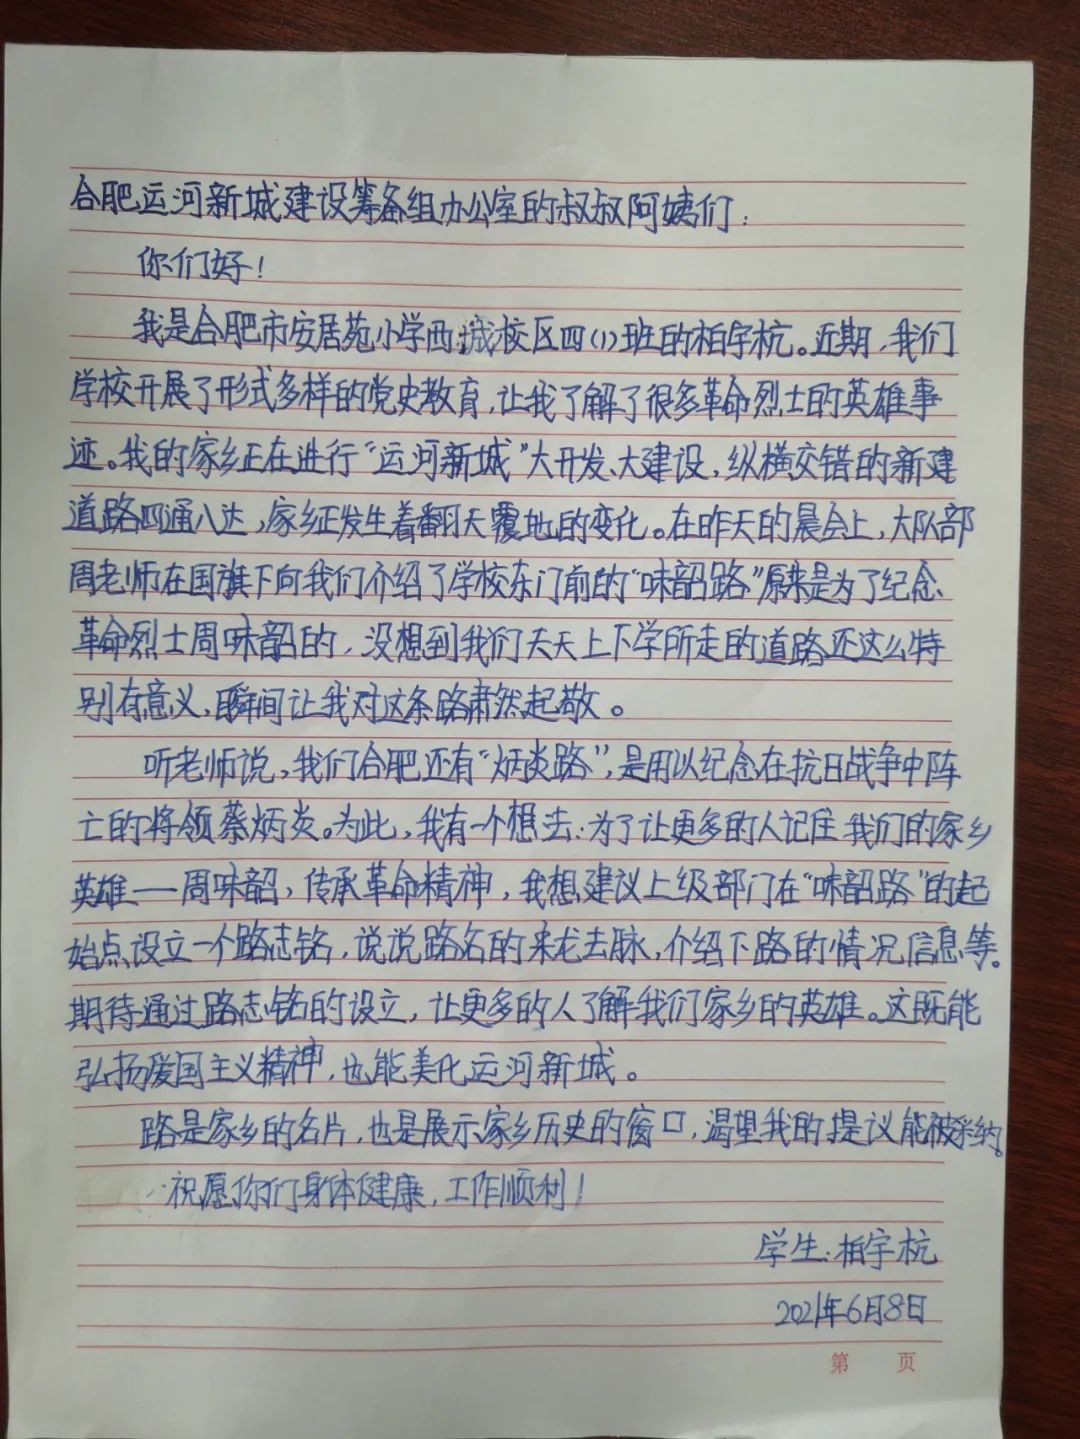 合肥运河新城建设筹备组办公室的叔叔阿姨们：
你们好！
我是合肥市安居苑小学西城校区四(1)班的柏宇杭。近期，我们
学校开展了形式多样的党史教育，让我了解了很多革命烈士的英雄事
迹。我的家乡正在进行“运河新城”大开发、大建设，纵横交错的新建
道路四通八达，家乡正发生着翻天覆地的变化。在昨天的晨会上，大队部
周老师在国旗下向我们介绍了学校东门前的“味韶路”原来是为了纪念
革命烈士周味韶的，没想到我们天天上下学所走的道路还这么特
别有意义，瞬间让我对这条路肃然起敬。
听老师说，我们合肥还有“炳炎路”，是用以纪念在抗日战争中阵
亡的将领蔡炳炎。为此，我有一个想法：为了让更多的人记住我们的家乡
英雄——周味韶，传承革命精神，我想建议上级部门在“味韶路”的起
始点设立一个路志铭，说说路名的来龙去脉，介绍下路的情况信息等。
期待通过路志铭的设立，让更多的人了解我们家乡的英雄。这既能
弘扬爱国主义精神，也能美化运河新城。
路是家乡的名片，也是展示家乡历史的窗口，渴望我的提议能被采纳。
祝愿你们身体健康，工作顺利！
学生：柏宇杭
2021年6月8日
第 页